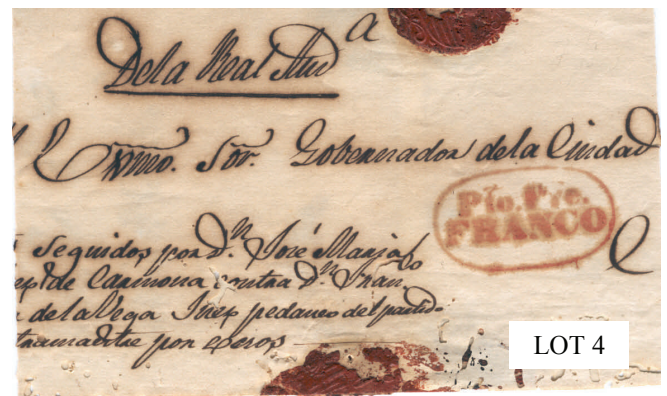 De la Real Aud.a
Exmo. Sor. Gobernador de la Ciudad
Pto. Pre.
FRANCO
seguidos por D.n José María
de Carmona contra D.n Fran.co
de la Vega Juez pedaneo del partido
por
LOT 4